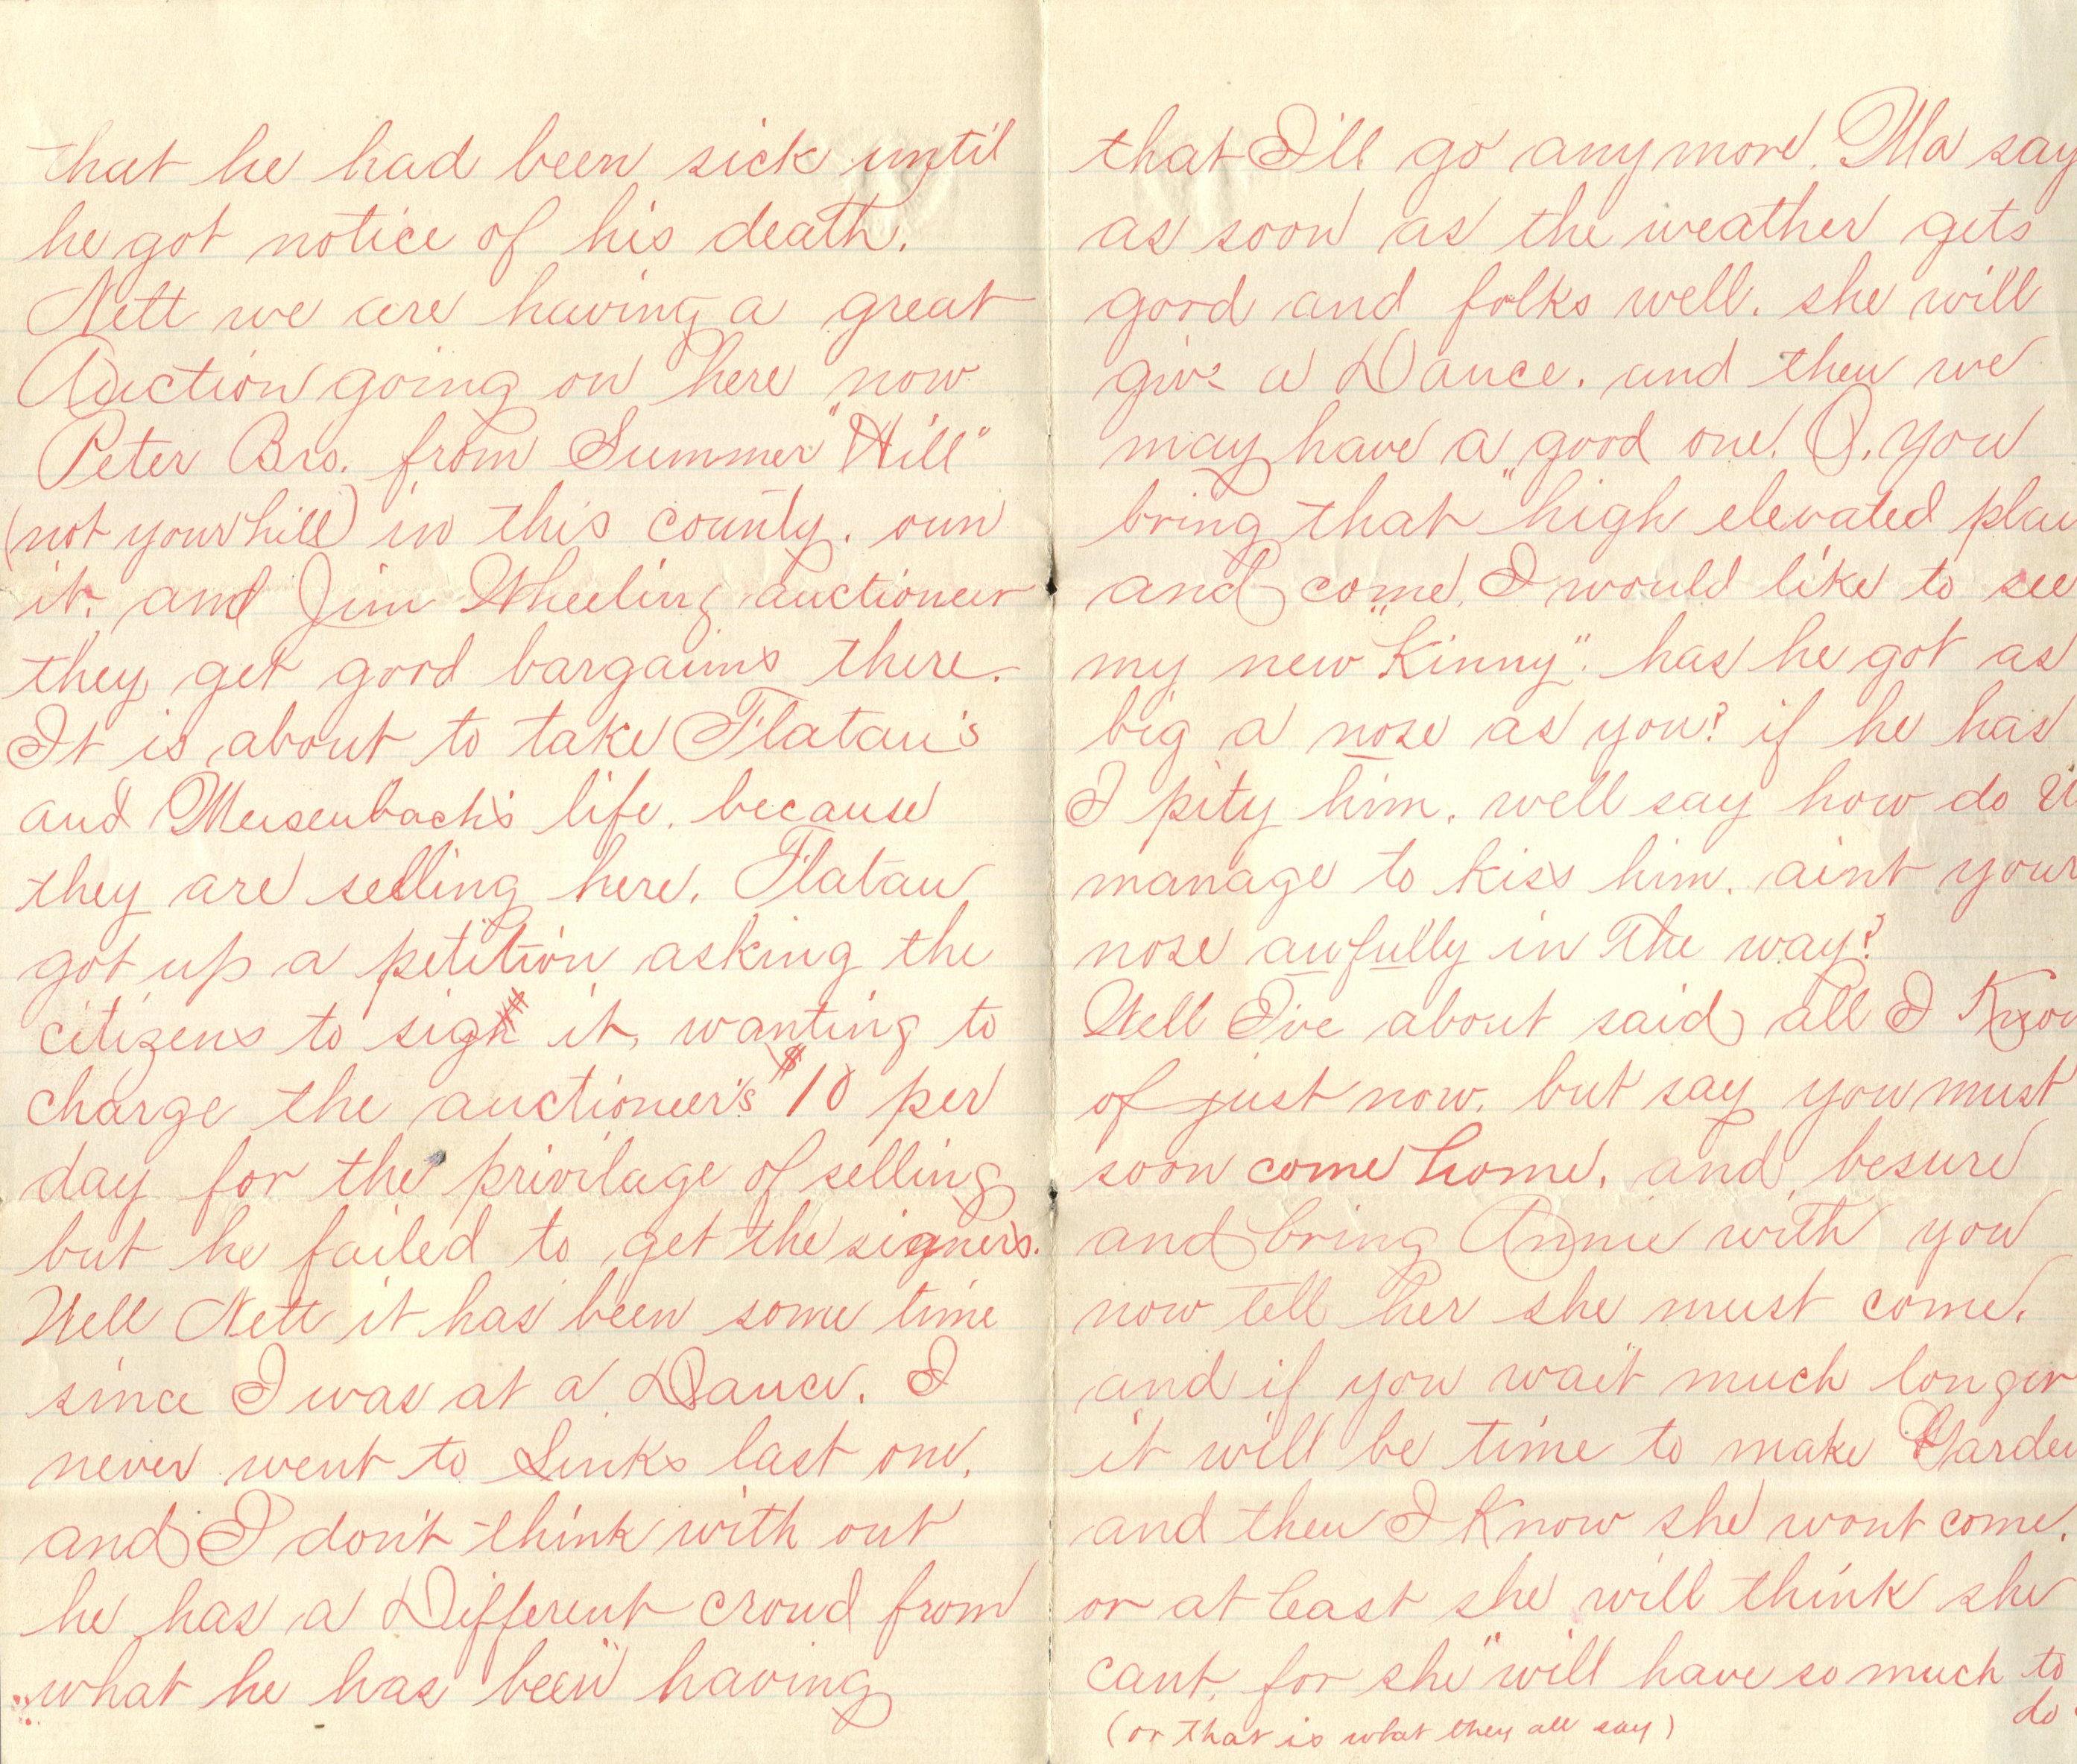 that he had been sick until
he got notice of his death.
Nett we are having a great
Auction going on here now
Peter Bro. from Summer "Hill"
(not your hill) in this county. own
it. and Jim Wheeling auctioneer
they get good bargains there.
It is about to take Flatau's
and Meisenbach's life. because
they are selling here. Flatau
got up a petition asking the
citizens to sign it, wanting to
charge the auctioneer's $10 per
day for the privilage of selling
but he failed to get the signers.
Well Nett it has been some time
since I was at a Dance. I
never went to Links last one.
and I don't think with out
he has a Different croud from
what he has "been" having
that I'll go anymore. Ma say
as soon as the weather gets
good and folks well. she will
give a Dance. and then we
may have a good one. O. you
bring that "high elevated
and come. I would like to see
my new "Kinny". has he got as
big a nose as you? if he has
I pity him. well say how do U
manage to kiss him. aint your
nose awfully in the way?
Well I've about said all I Know
of just now. but say you must
soon come home. and besure
and bring Annie with you
now tell her she must come.
and if you wait much longer
it will be time to make Garden
and then I Know she wont come.
or at least she will think she
cant. for she "will have so much to
do
(or that is what they all say)